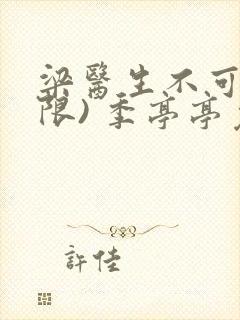 梁醫生不可
限)季亭亭
許佳